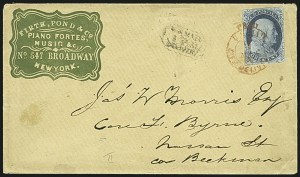 FIRTH, POND & Co
PIANO FORTES
MUSIC &c
No 547 BROADWAY
NEW YORK.
Jas W Morris Esq
Care L. Byrne.
Nassau St
cor Beekman